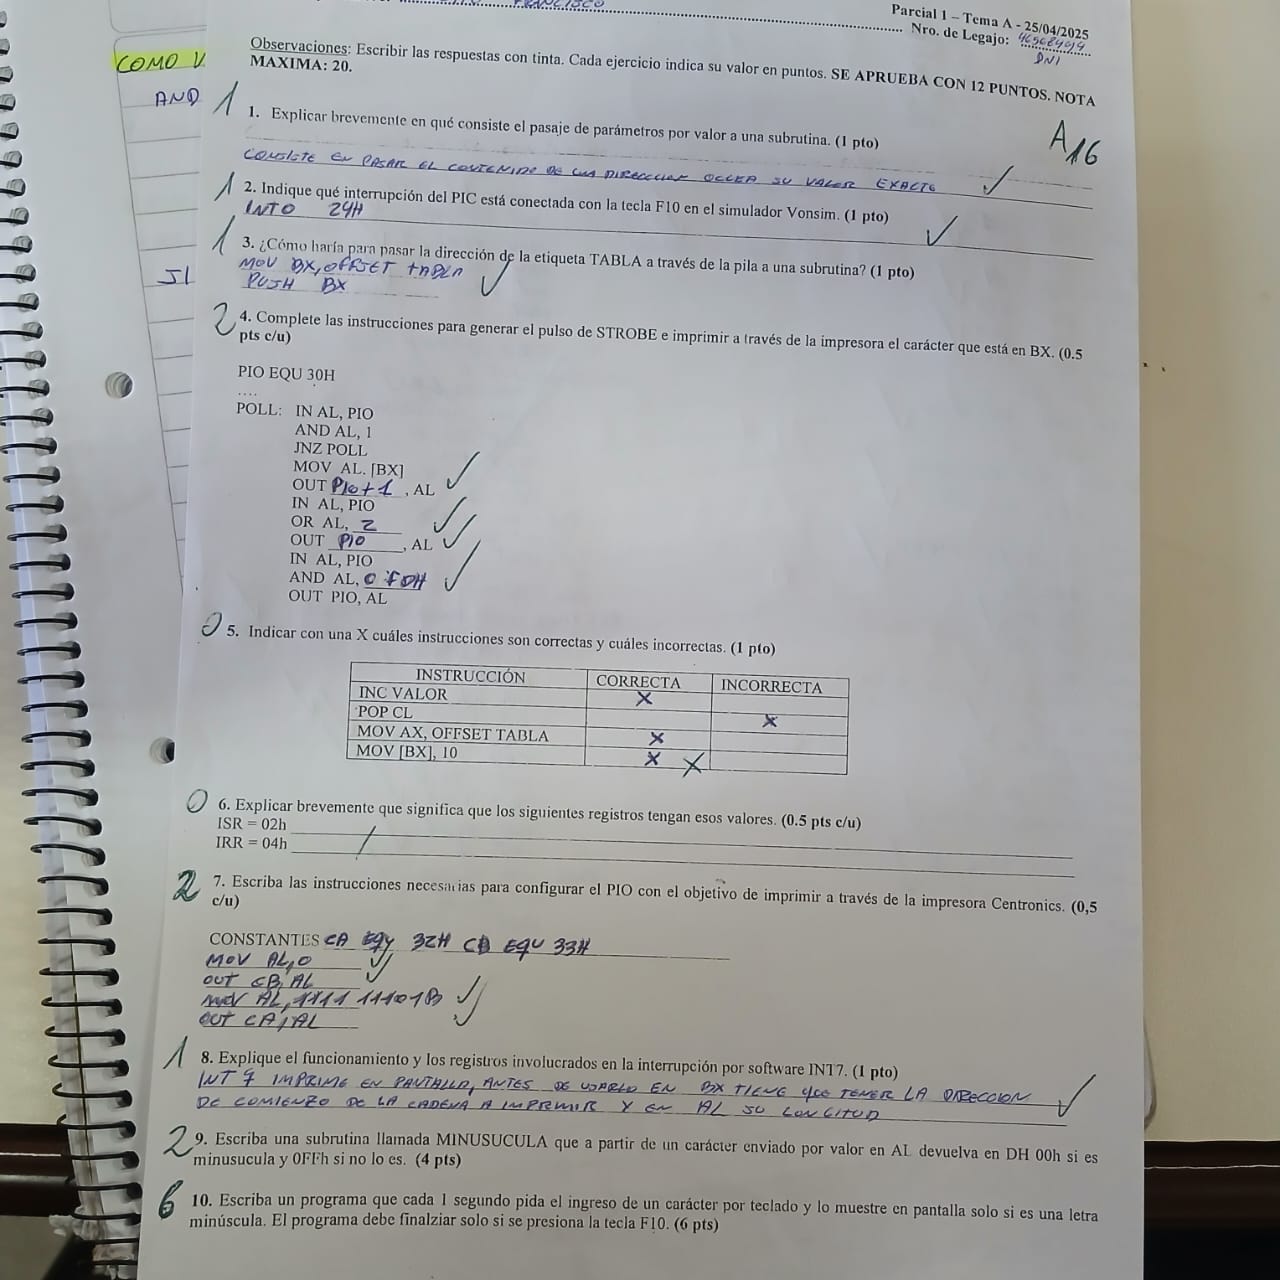 FRANCISCO
Parcial 1 – Tema A - 25/04/2025
Nro. de Legajo:
DNI
COMO V
AND
JL
Observaciones: Escribir las respuestas con tinta. Cada ejercicio indica su valor en puntos. SE APRUEBA CON 12 PUNTOS. NOTA
MAXIMA: 20.
A16
1
1. Explicar brevemente en qué consiste el pasaje de parámetros por valor a una subrutina. (1 pto)
CONSISTE EN PASAR EL CONTENIDO DE UNA DIRECCION O SEA SU VALOR EXACTO
1
2. Indique qué interrupción del PIC está conectada con la tecla F10 en el simulador Vonsim. (1 pto)
INT0 24H
1
3. ¿Cómo haría para pasar la dirección de la etiqueta TABLA a través de la pila a una subrutina? (1 pto)
MOV BX, OFFSET TABLA
PUSH BX
2
4. Complete las instrucciones para generar el pulso de STROBE e imprimir a través de la impresora el carácter que está en BX. (0.5
pts c/u)
PIO EQU 30H
....
POLL: IN AL, PIO
AND AL, 1
JNZ POLL
MOV AL. [BX]
OUT PIO+1 , AL
IN AL, PIO
OR AL, 2
OUT PIO , AL
IN AL, PIO
AND AL, 0FDH
OUT PIO, AL
0
5. Indicar con una X cuáles instrucciones son correctas y cuáles incorrectas. (1 pto)
INSTRUCCIÓN CORRECTA INCORRECTA
INC VALOR X
POP CL X
MOV AX, OFFSET TABLA X
MOV [BX], 10 X X
0
6. Explicar brevemente que significa que los siguientes registros tengan esos valores. (0.5 pts c/u)
ISR = 02h
IRR = 04h
2
7. Escriba las instrucciones necesarias para configurar el PIO con el objetivo de imprimir a través de la impresora Centronics. (0,5
c/u)
CONSTANTES CA EQU 32H CB EQU 33H
MOV AL,0
OUT CB, AL
MOV AL, 1111 11101B
OUT CA, AL
1
8. Explique el funcionamiento y los registros involucrados en la interrupción por software INT7. (1 pto)
INT 7 IMPRIME EN PANTALLA, ANTES DE USARLO EN BX TIENE QUE TENER LA DIRECCION
DE COMIENZO DE LA CADENA A IMPRIMIR Y EN AL SU LONGITUD
2
9. Escriba una subrutina llamada MINUSUCULA que a partir de un carácter enviado por valor en AL devuelva en DH 00h si es
minusucula y 0FFh si no lo es. (4 pts)
6
10. Escriba un programa que cada 1 segundo pida el ingreso de un carácter por teclado y lo muestre en pantalla solo si es una letra
minúscula. El programa debe finalziar solo si se presiona la tecla F10. (6 pts)